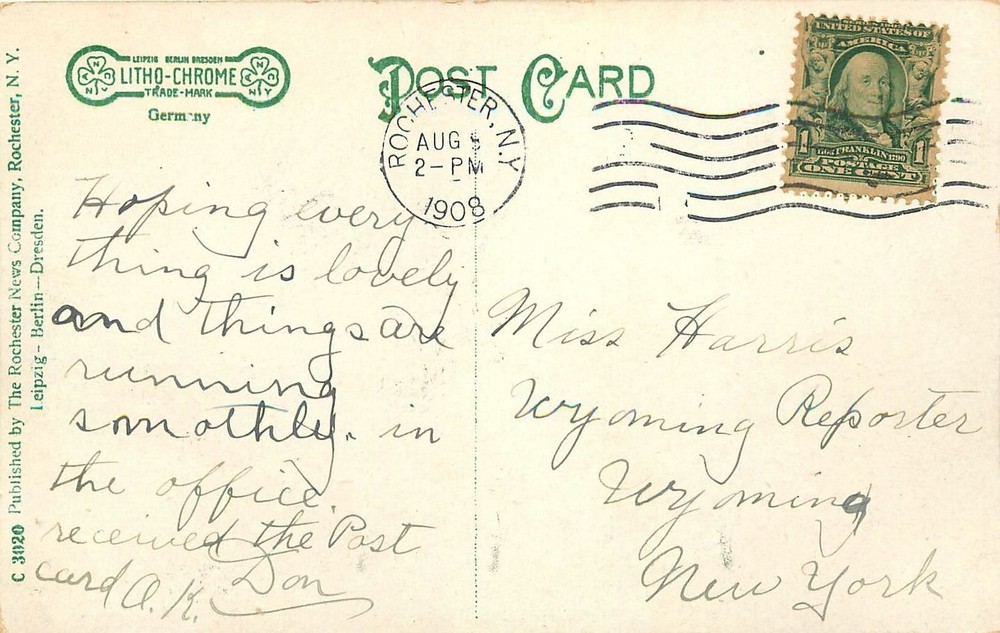 LEIPZIG BERLIN DRESDEN
LITHO-CHROME
TRADE-MARK
N Y
N Y
Germany
POST CARD
ROCHESTER, N.Y.
AUG 5
2-PM
1908
UNITED STATES OF
AMERICA
1 FRANKLIN 1790 1
POSTAGE
ONE CENT
C 3020 Published by The Rochester News Company, Rochester, N. Y.
Leipzig - Berlin - Dresden.
Hoping every
thing is lovely
and things are
running
smothly. in
the office.
received the Post
card O.K. Don
Miss Harris
Wyoming Reporter
Wyoming
New York